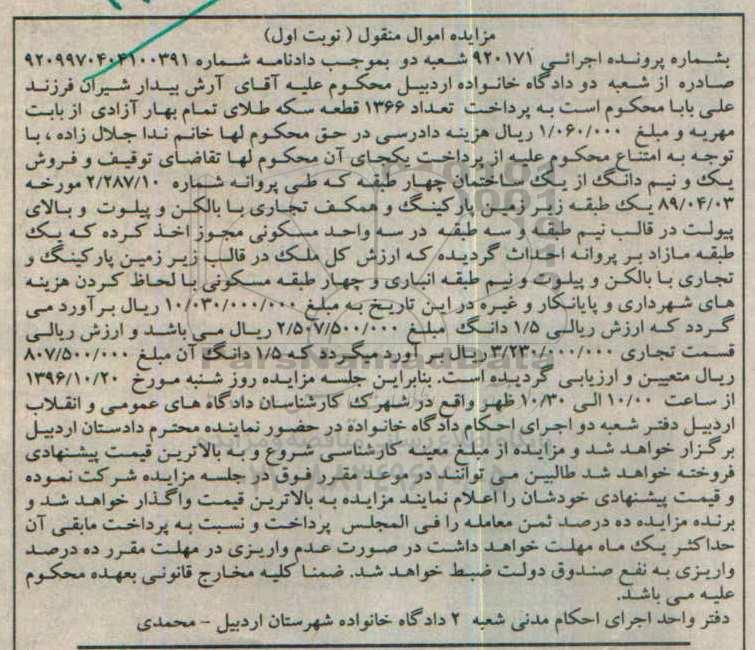 مزایده اموال منقول ( نوبت اول)
بشماره پرونده اجرائی ۹۲۰۱۷۱ شعبه دو بموجب دادنامه شماره ۹۲۰۹۹۷۰۴۰۴۱۰۰۳۹۱
صادره از شعبه دو دادگاه خانواده اردبیل محکوم علیه آقای آرش بیدار شیران فرزند
علی بابا محکوم است به پرداخت تعداد ۱۳۶۶ قطعه سکه طلای تمام بهار آزادی از بابت
مهریه و مبلغ ۱/۰۶۰/۰۰۰ ریال هزینه دادرسی در حق محکوم لها خانم ندا جلال زاده ، با
توجه به امتناع محکوم علیه از پرداخت یکجای آن محکوم لها تقاضای توقیف و فروش
یک و نیم دانگ از یک ساختمان چهار طبقه که طی پروانه شماره ۲/۲۸۷/۱۰ مورخه
۸۹/۰۴/۰۳ یک طبقه زیر زمین پارکینگ و همکف تجاری با بالکن و پیلوت و بالای
پیولت در قالب نیم طبقه و سه طبقه در سه واحد مسکونی مجوز اخذ کرده که یک
طبقه مازاد بر پروانه احداث گردیده که ارزش کل ملک در قالب زیر زمین پارکینگ و
تجاری با بالکن و پیلوت و نیم طبقه انباری و چهار طبقه مسکونی با لحاظ کردن هزینه
های شهرداری و پایانکار و غیره در این تاریخ به مبلغ ۱۰/۰۳۰/۰۰۰/۰۰۰ ریال بر آورد می
گردد که ارزش ریالی ۱/۵ دانگ مبلغ ۲/۵۰۷/۵۰۰/۰۰۰ ریال می باشد و ارزش ریالی
قسمت تجاری ۳/۲۳۰/۰۰۰/۰۰۰ ریال بر آورد میگردد که ۱/۵ دانگ آن مبلغ ۸۰۷/۵۰۰/۰۰۰
ریال متعیین و ارزیابی گردیده است. بنابراین جلسه مزایده روز شنبه مورخ ۱۳۹۶/۱۰/۲۰
از ساعت ۱۰/۰۰ الی ۱۰/۳۰ ظهر واقع در شهرک کارشناسان دادگاه های عمومی و انقلاب
اردبیل دفتر شعبه دو اجرای احکام دادگاه خانواده در حضور نماینده محترم دادستان اردبیل
برگزار خواهد شد و مزایده از مبلغ معینه کارشناسی شروع و به بالاترین قیمت پیشنهادی
فروخته خواهد شد طالبین می توانند در موعد مقرر فوق در جلسه مزایده شرکت نموده
و قیمت پیشنهادی خودشان را اعلام نمایند مزایده به بالاترین قیمت واگذار خواهد شد و
برنده مزایده ده درصد ثمن معامله را فی المجلس پرداخت و نسبت به پرداخت مابقی آن
حداکثر یک ماه مهلت خواهد داشت در صورت عدم واریزی در مهلت مقرر ده درصد
واریزی به نفع صندوق دولت ضبط خواهد شد. ضمنا کلیه مخارج قانونی بعهده محکوم
علیه می باشد.
دفتر واحد اجرای احکام مدنی شعبه ۲ دادگاه خانواده شهرستان اردبیل - محمدی
ParsNamadData